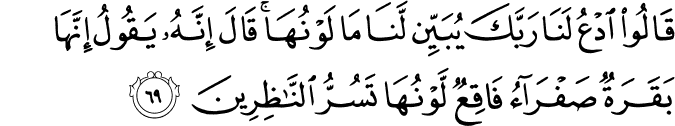 قَالُوا۟ ٱدْعُ لَنَا رَبَّكَ يُبَيِّن لَّنَا مَا لَوْنُهَا ۚ قَالَ إِنَّهُۥ يَقُولُ إِنَّهَا
بَقَرَةٌ صَفْرَآءُ فَاقِعٌ لَّوْنُهَا تَسُرُّ ٱلنَّـٰظِرِينَ ٦٩